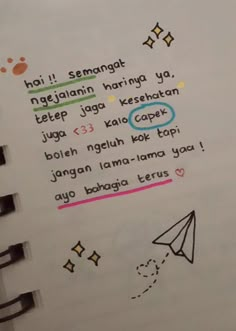 hai !! semangat
ngejalanin harinya ya,
tetep jaga kesehatan
juga <33 kalo capek
boleh ngeluh kok tapi
jangan lama-lama yaa !
ayo bahagia terus